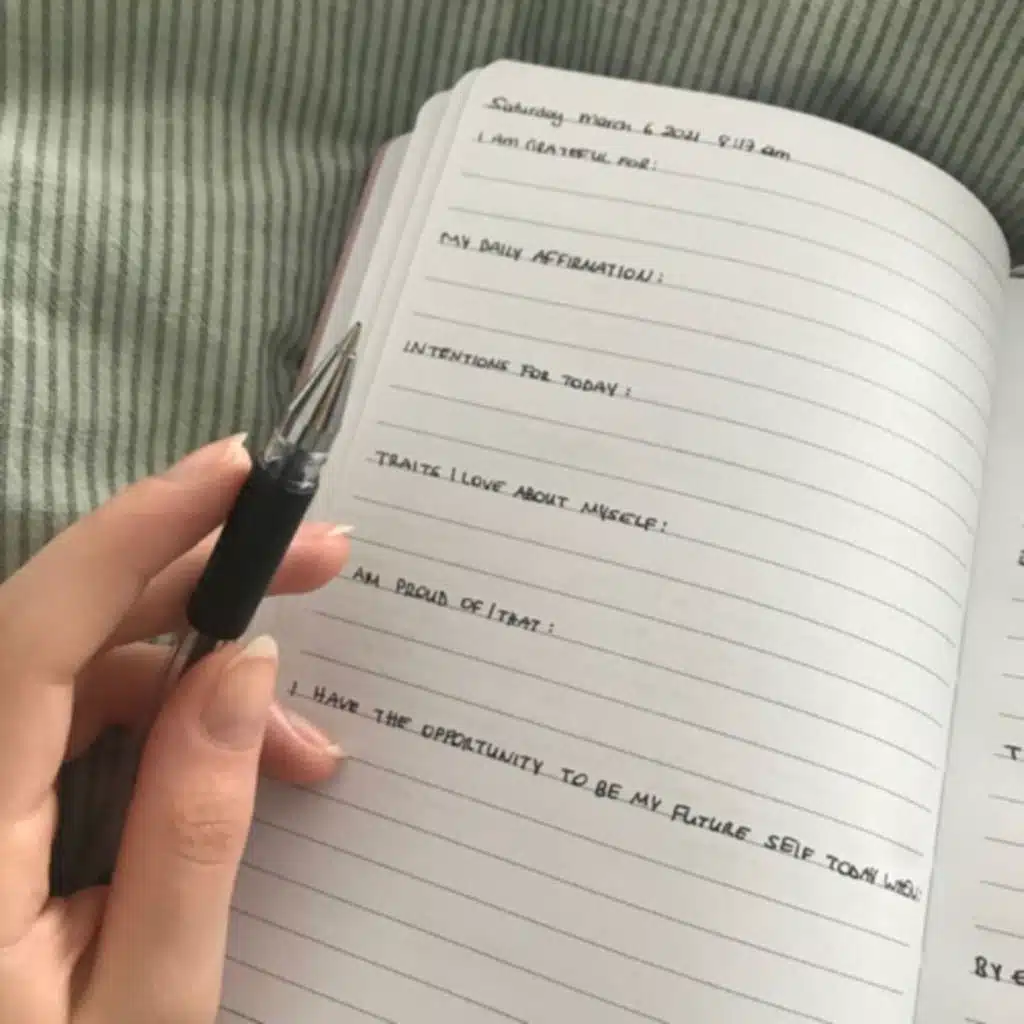 Saturday March 6 2021 8:17 am
I AM GRATEFUL FOR:
MY DAILY AFFIRMATION:
INTENTIONS FOR TODAY:
TRAITS I LOVE ABOUT MYSELF:
AM PROUD OF/THAT:
I HAVE THE OPPORTUNITY TO BE MY FUTURE SELF TODAY WHEN:
T
BY